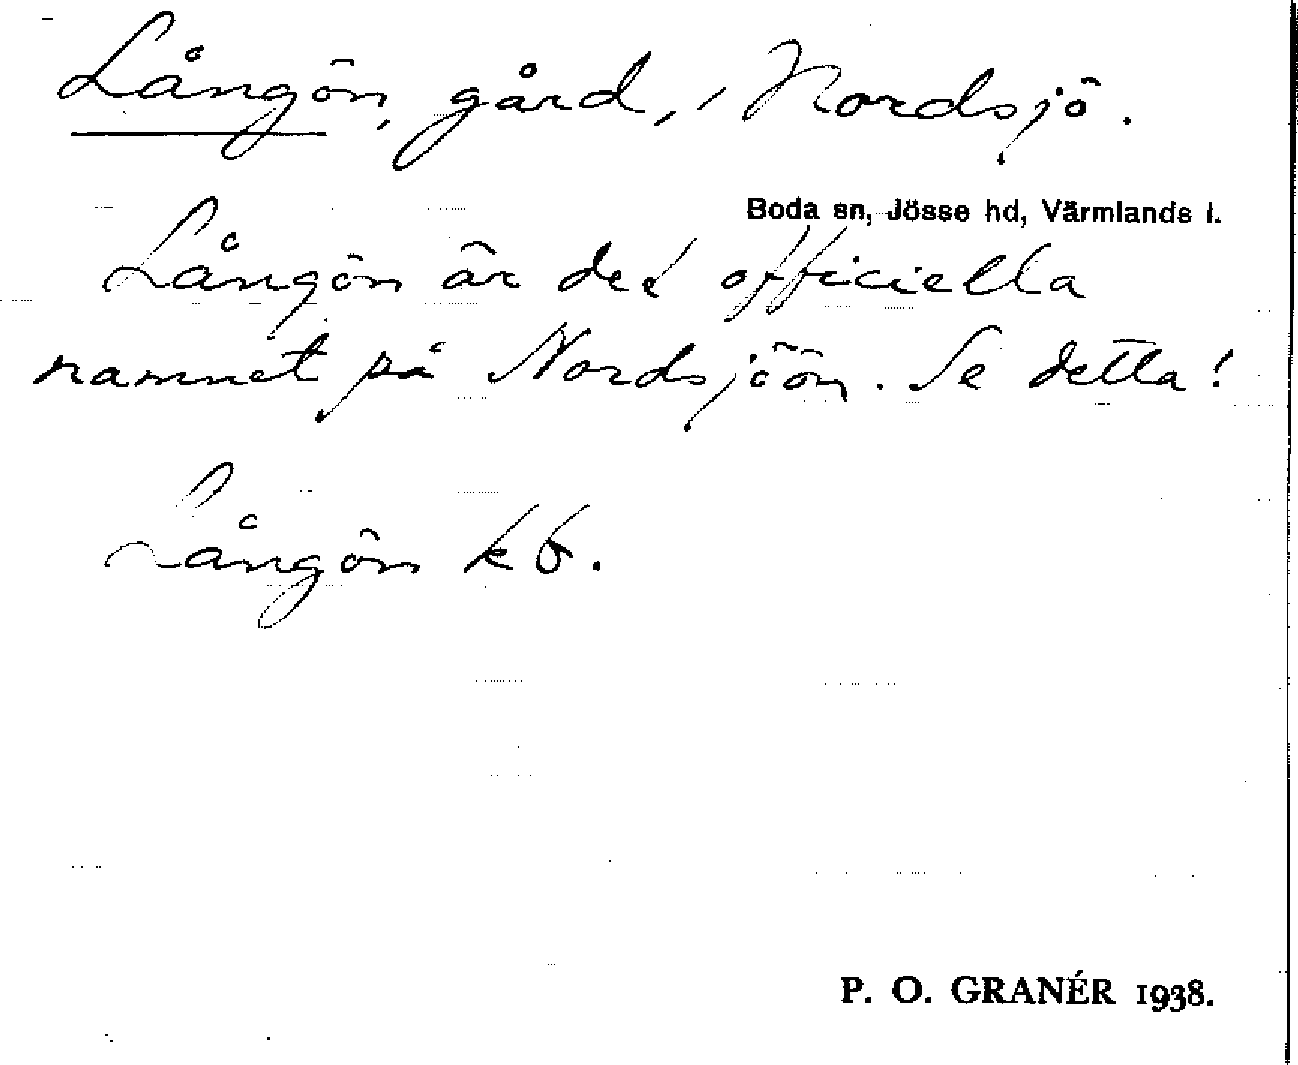 Långön, gård, i Nordsjö.
Boda sn, Jösse hd, Värmlands l.
Långön är det officiella
namnet på Nordsjöön. Se detta!
Långön kb.
P. O. GRANÉR 1938.